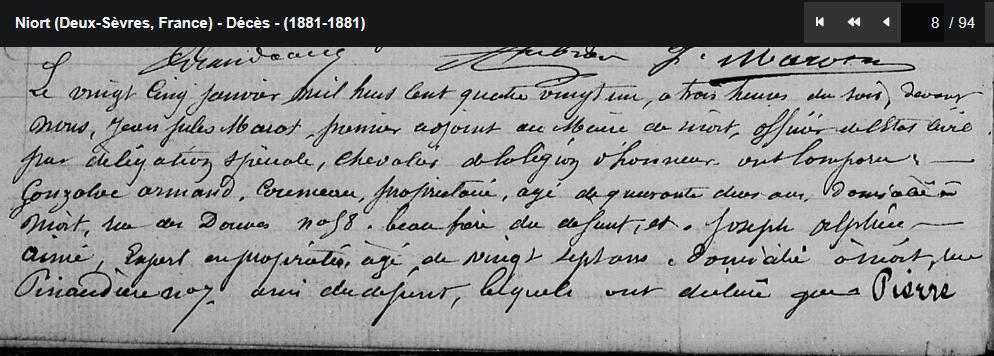 Niort (Deux-Sèvres, France) - Décès - (1881-1881)
8 / 94
J. Marot
Le vingt Cinq janvier Mil huit Cent quatre vingt un, a trois heures du soir, devant
nous, Jean Jules Marot, premier adjoint au Maire de niort, officier de l'Etat Civil
par délégation Spéciale, Chevalier de la légion d'honneur ont Comparu :
Gonzalve armand, propriétaire, agé de quarante deux ans, Domicilié à
Niort, rue des Douves no 58. beau frère du défunt, et. Joseph alphée
aimé, Expert en propriétés, agé de vingt sept ans. Domicilié à niort, rue
Pinaudière no 7 ami du défunt, lesquels ont déclaré que Pierre